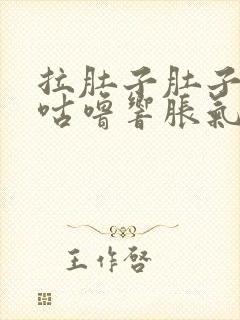 拉肚子肚子
咕噜響脹氣
王作啓